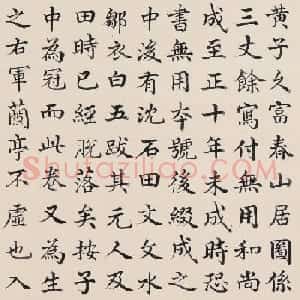 黄子久富春山居圖係
三丈餘寫付無用和尚
成至正十年未成時恐
書無用本號後綴成之
中後有沈石田文文水
鄒衣白五跋其元人及
田時已經脫落矣按子
中為冠而此卷又為生
之右軍蘭亭不虛也入
Shufaziliao.com